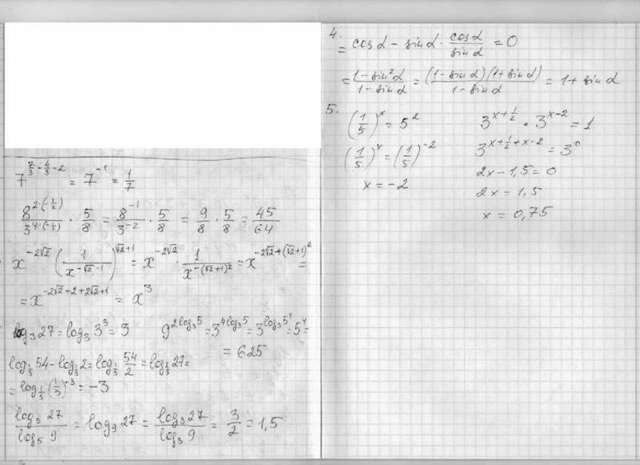 7^{7/3 - 4/3 - 2} = 7^{-1} = 1/7
8^{2·(-1/2)}/3^{4·(-1/2)} · 5/8 = 8^{-1}/3^{-2} · 5/8 = 9/8 · 5/8 = 45/64
x^{-2√2} (1/x^{-√2-1})^{√2+1} = x^{-2√2} · 1/x^{-(√2+1)^2} = x^{-2√2+(√2+1)^2} =
= x^{-2√2+2+2√2+1} = x^3
log_3 27 = log_3 3^3 = 3 9^{2log_3 5} = 3^{4log_3 5} = 3^{log_3 5^4} = 5^4 =
= 625
log_{1/3} 54 - log_{1/3} 2 = log_{1/3} 54/2 = log_{1/3} 27 =
= log_{1/3} (1/3)^{-3} = -3
log_5 27 / log_5 9 = log_9 27 = log_3 27 / log_3 9 = 3/2 = 1,5
4.
= cos α - sin α · cos α / sin α = 0
= (1 - sin^2 α)/(1 - sin α) = (1 - sin α)(1 + sin α)/(1 - sin α) = 1 + sin α
5.
(1/5)^x = 5^2 3^{x+1/2} · 3^{x-2} = 1
(1/5)^x = (1/5)^{-2} 3^{x+1/2+x-2} = 3^0
x = -2 2x - 1,5 = 0
2x = 1,5
x = 0,75